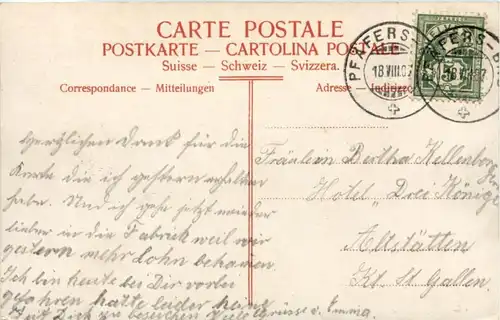 CARTE POSTALE
POSTKARTE — CARTOLINA POSTALE
Suisse — Schweiz — Svizzera.
Correspondance — Mitteilungen
Adresse — Indirizzo
PFÄFERS-
18.VIII.07
Herzlichen Dank für die
Karte die ich gestern erhalten
habe. Und ich gehe jetzt wieder
lieber in die Fabrick weil wir
gestern mehr Lohn bekamen.
Ich bin heute bei Dir vorbei
gefahren hatte leider keine
Zeit Dich zu besuchen Viele Grüsse v. Emma.
Fräulein Bertha Kellenberg
Hotel „Drei Könige
Altstätten
Kt. St. Gallen.